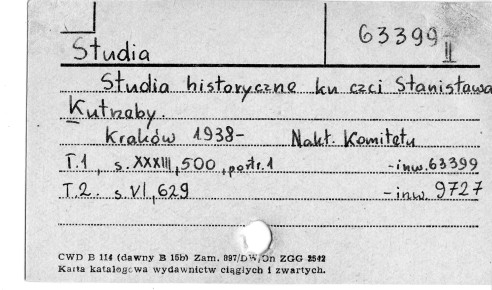 Studia
63399 II
Studia historyczne ku czci Stanisława
Kutrzeby.
Kraków 1938- Nakł. Komitetu
T.1, s. XXXIII, 500, portr. 1 -inw. 63399
T.2. s. VI, 629 -inw. 9727
CWD B 114 (dawny B 15b) Zam. 897/DW/Dn ZGG 2542
Karta katalogowa wydawnictw ciągłych i zwartych.